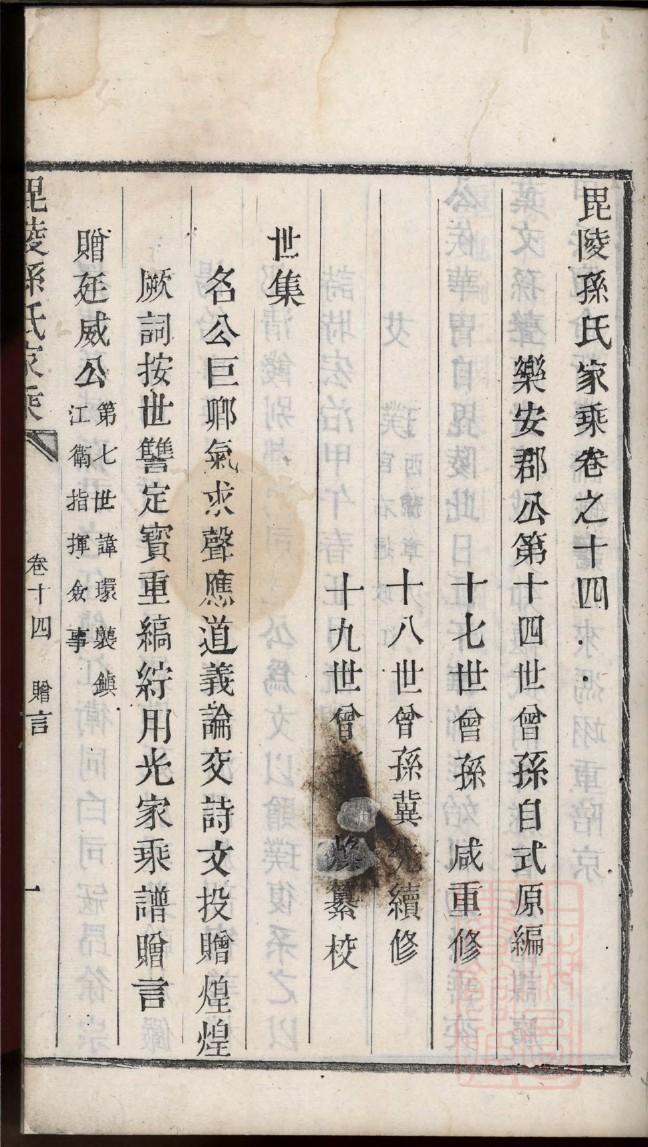 毘陵孫氏家乘卷之十四
樂安郡公第十四世曾孫自式原編
十七世曾孫　咸重修
十八世曾孫冀　續修
十九世曾　　纂校
世集
名公巨卿氣求聲應道義論交詩文投贈煌煌
厥詞按世讐定寳重縞紵用光家乘譜贈言
贈廷威公第七世諱環襲鎮
江衛指揮僉事
毘陵孫氏家乘
卷十四　贈言
一